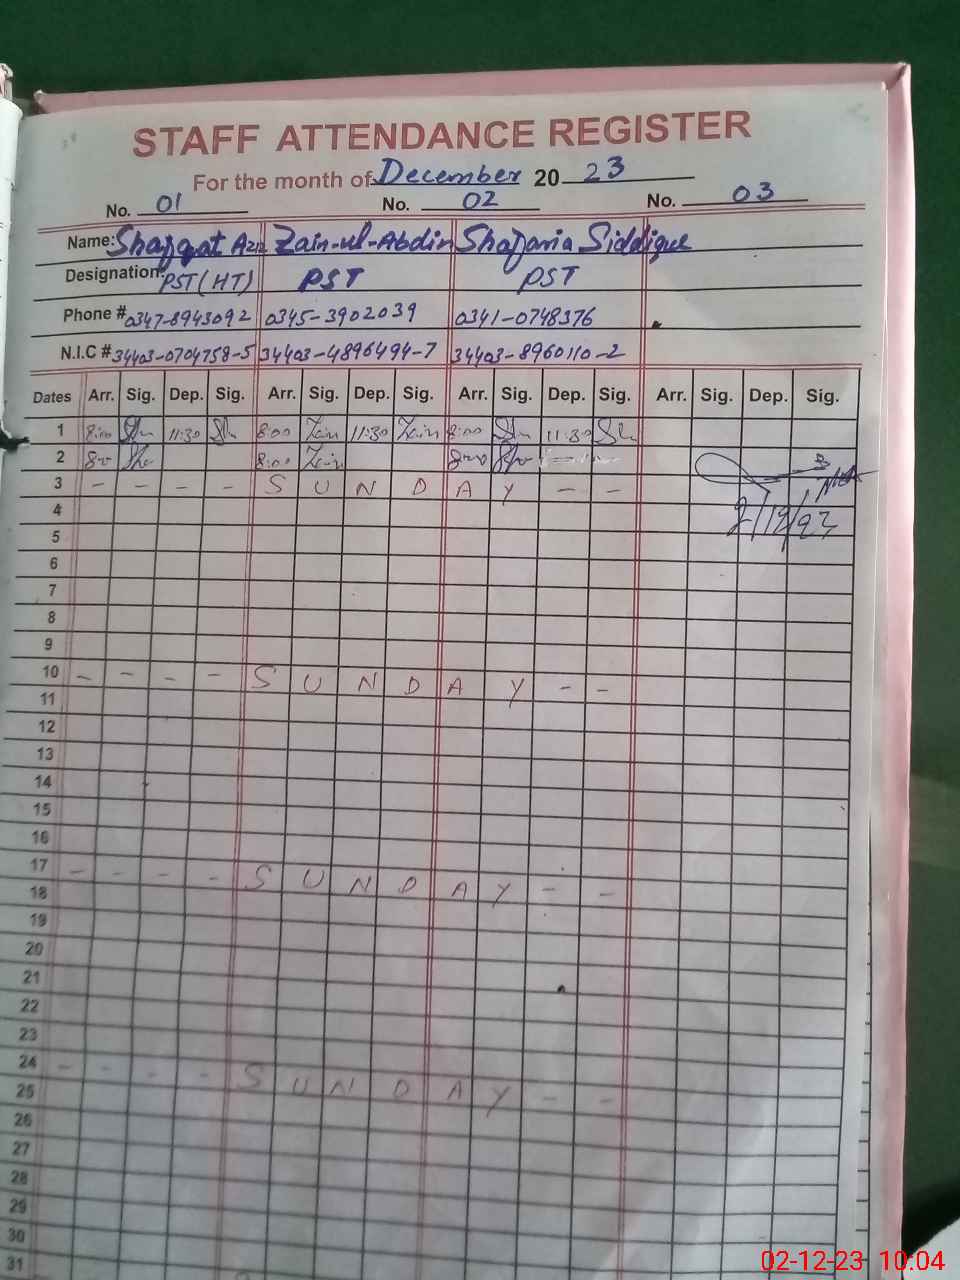 STAFF ATTENDANCE REGISTER
For the month of December 20 23
No. 01 No. 02 No. 03
Name: Shafqat Aziz Zain-ul-Abdin Shazania Siddique
Designation: PST (HT) PST PST
Phone # 0347-8943092 0345-3902039 0341-0748376
N.I.C # 34403-0704758-5 34403-4896494-7 34403-8960110-2
Dates Arr. Sig. Dep. Sig. Arr. Sig. Dep. Sig. Arr. Sig. Dep. Sig. Arr. Sig. Dep. Sig.
1 8:00 11:30 8:00 Zain 11:30 Zain 8:00 11:30
2 8:00 8:00 Zain 8:00
3 - - - - S U N D A Y - -
4
2/12/23
5
6
7
8
9
10 - - - - S U N D A Y - -
11
12
13
14
15
16
17 - - - - S U N D A Y - -
18
19
20
21
22
23
24 - - - - S U N D A Y - -
25
26
27
28
29
30
31
02-12-23 10:04